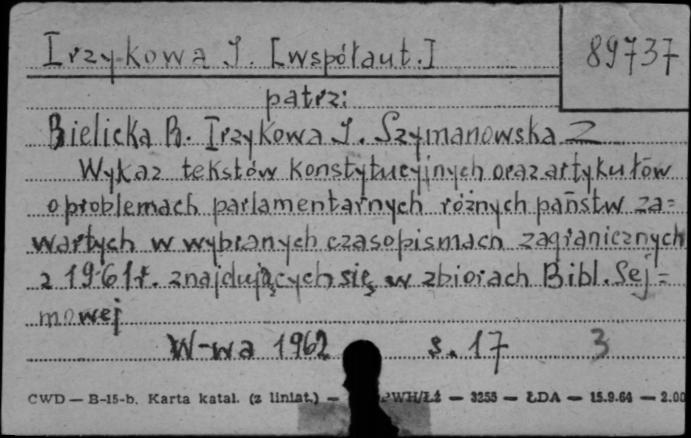 Irzykowa J. [współaut.]
89737
patrz:
Bielicka B. Irzykowa J. Szymanowska Z
Wykaz tekstów konstytucyjnych oraz artykułów
o problemach parlamentarnych różnych państw za=
wartych w wybranych czasopismach zagranicznych
z 1961r. znajdujących się w zbiorach Bibl. Sej=
mowej
W-wa 1962 s. 17 3
CWD — B-15-b. Karta katal. (z liniat.) — PWH/Łź — 3255 — ŁDA — 15.9.64 — 2.00